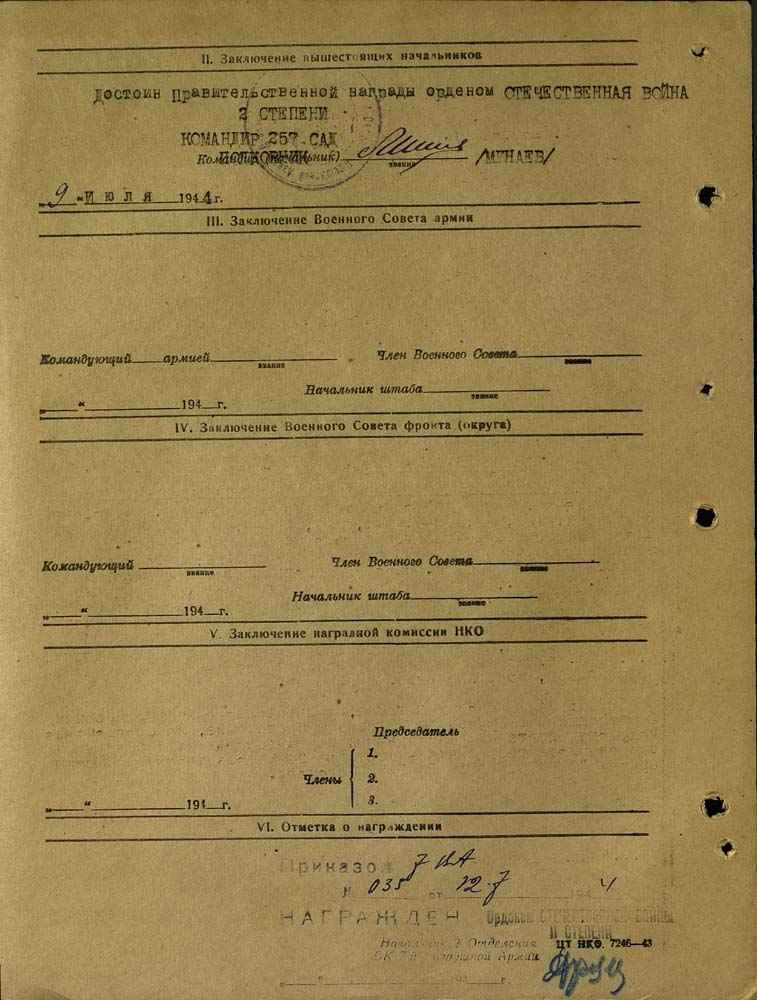 II. Заключение вышестоящих начальников
Достоин Правительственной награды орденом ОТЕЧЕСТВЕННАЯ ВОЙНА
2 СТЕПЕНИ
КОМАНДИР 257 САД
Командир (начальник)
ПОЛКОВНИК
звание
/МИНАЕВ/
„9“ ИЮЛЯ 1944г.
III. Заключение Военного Совета армии
Командующий армией
звание
Член Военного Совета
звание
Начальник штаба
звание
„ “ 194 г.
IV. Заключение Военного Совета фронта (округа)
Командующий
звание
Член Военного Совета
звание
Начальник штаба
звание
„ “ 194 г.
V. Заключение наградной комиссии НКО
Председатель
Члены
1.
2.
3.
„ “ 194 г.
VI. Отметка о награждении
Приказом 7 ВА
№ 035 от 12.7 4
НАГРАЖДЕН Орденом ВОЙНЫ
II СТЕПЕНИ
Отделения
ЦТ НКО. 7246—43
ОК 7й Армии